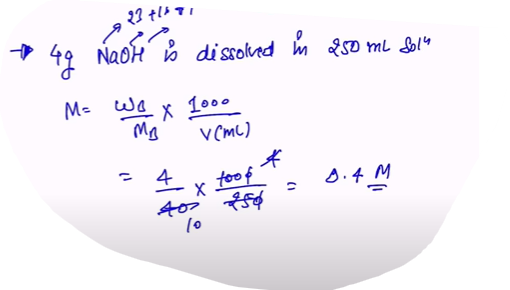 23 + 16 + 1
→ 4g NaOH is dissolved in 250 mL Solⁿ
M = W_B / M_B × 1000 / V(mL)
= 4 / 40 × 1000 / 250 = 0.4 M
4
10